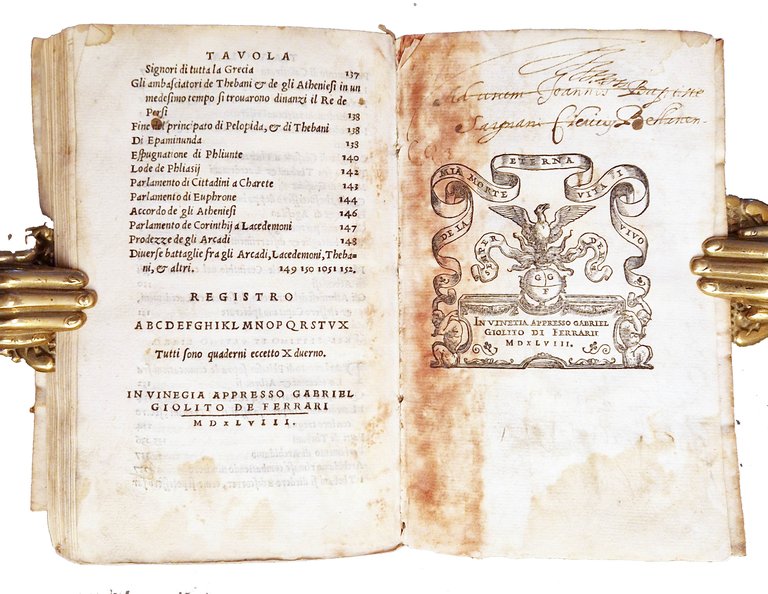 TAVOLA
Signori di tutta la Grecia 137
Gli ambasciatori de Thebani & de gli Atheniesi in un
medesimo tempo si trouarono dinanzi il Re de
Persi 138
Fine del principato di Pelopida, & di Thebani 138
Di Epaminunda 138
Espugnatione di Phliunte 140
Lode de Phliasij 142
Parlamento di Cittadini a Charete 143
Parlamento di Euphrone 144
Accordo de gli Atheniesi 146
Parlamento de Corinthij a Lacedemoni 147
Prodezze de gli Arcadi 148
Diuerse battaglie fra gli Arcadi, Lacedemoni, Theba-
ni, & altri. 149 150 1051 152.
REGISTRO
ABCDEFGHIKLMNOPQRSTVX
Tutti sono quaderni eccetto X duerno.
IN VINEGIA APPRESSO GABRIEL
GIOLITO DE FERRARI
MDXLVIII.
Ad usum Joannis Baptiste
DE LA MIA MORTE ETERNA VITA I VIVO
SEMPER
G G
F
IN VINETIA APPRESSO GABRIEL
GIOLITO DI FERRARII
MDXLVIII.